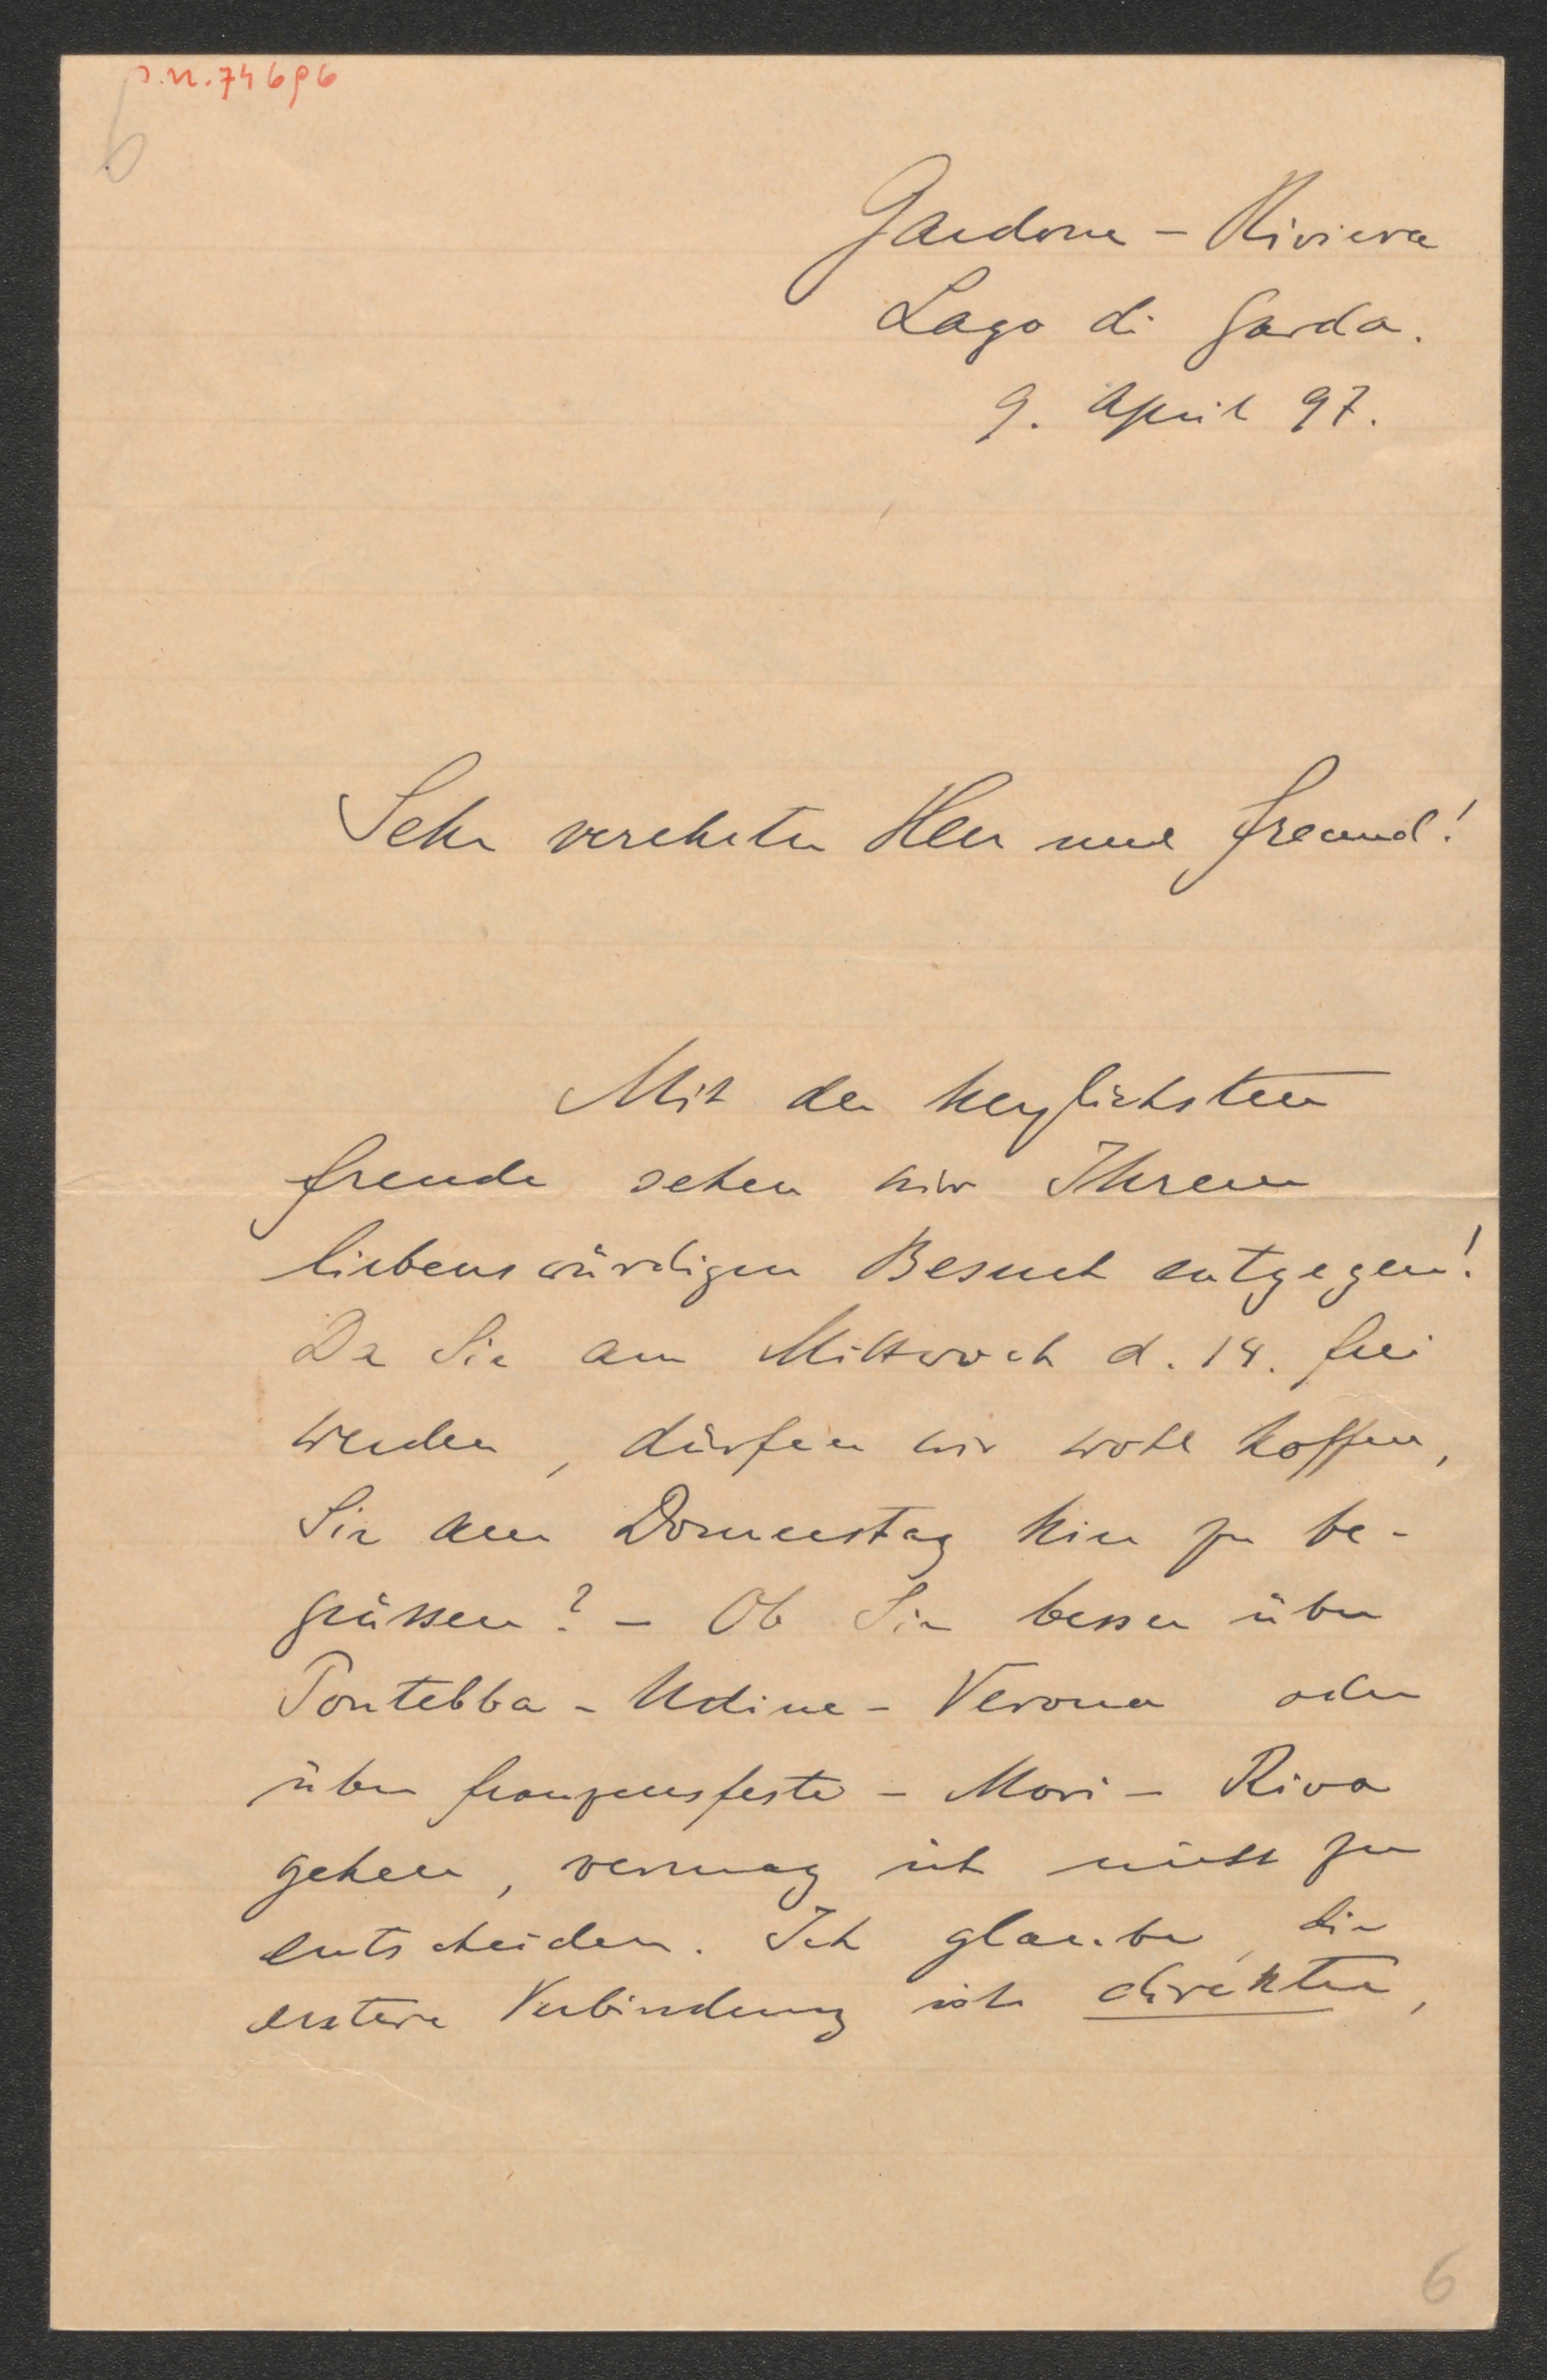 J.N. 74696
6
Gardone - Riviera
Lago di Garda.
9. April 97.
Sehr verehrter Herr und Freund!
Mit der herzlichsten
Freude sehen wir Ihrem
liebenswürdigen Besuch entgegen!
Da Sie am Mittwoch d. 14. frei
werden, dürfen wir wohl hoffen,
Sie am Donnerstag hier zu be-
grüssen? - Ob Sie besser über
Pontebba - Udine - Verona oder
über Franzensfeste - Mori - Riva
gehen, vermag ich nicht zu
entscheiden. Ich glaube, die
erstere Verbindung ist direkter,
6